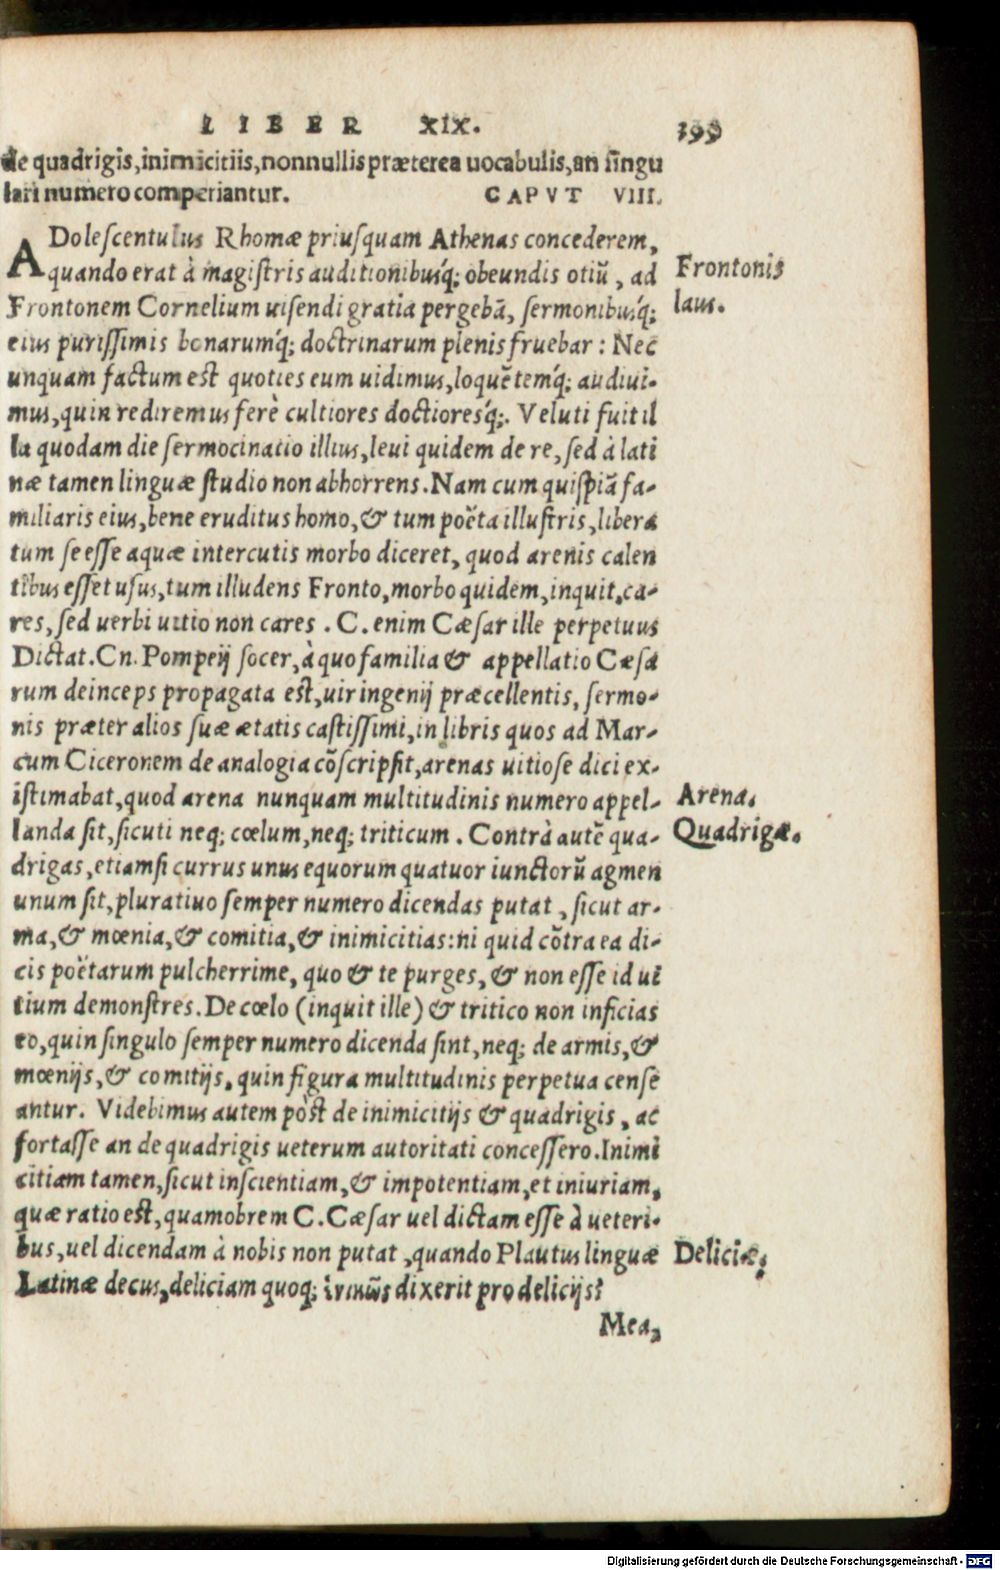 LIBER XIX. 199
de quadrigis, inimicitiis, nonnullis præterea uocabulis, an singu
lari numero comperiantur. CAPVT VIII.
ADolescentulus Rhomæ priusquam Athenas concederem,
quando erat à magistris auditionibusq́; obeundis otiũ, ad
Frontonis
Frontonem Cornelium uisendi gratia pergebã, sermonibusq́;
laus.
eius purissimis bonarumq́; doctrinarum plenis fruebar: Nec
unquam factum est quoties eum uidimus, loquẽtemq́; audiui-
mus, quin rediremus ferè cultiores doctioresq́;. Veluti fuit il
la quodam die sermocinatio illius, leui quidem de re, sed à lati
næ tamen linguæ studio non abhorrens. Nam cum quispiã fa-
miliaris eius, bene eruditus homo, & tum poëta illustris, libera
tum se esse aquæ intercutis morbo diceret, quod arenis calen
tibus esset usus, tum illudens Fronto, morbo quidem, inquit, ca-
res, sed uerbi uitio non cares. C. enim Cæsar ille perpetuus
Dictat. Cn. Pompeij socer, à quo familia & appellatio Cæsa
rum deinceps propagata est, uir ingenij præcellentis, sermo-
nis præter alios suæ ætatis castissimi, in libris quos ad Mar-
cum Ciceronem de analogia cõscripsit, arenas uitiose dici ex-
istimabat, quod arena nunquam multitudinis numero appel-
Arena.
landa sit, sicuti neq; cœlum, neq; triticum. Contrà autẽ qua-
Quadrigæ.
drigas, etiamsi currus unus equorum quatuor iunctorũ agmen
unum sit, pluratiuo semper numero dicendas putat, sicut ar-
ma, & mœnia, & comitia, & inimicitias: ni quid cõtra ea di-
cis poëtarum pulcherrime, quo & te purges, & non esse id ui
tium demonstres. De cœlo (inquit ille) & tritico non inficias
eo, quin singulo semper numero dicenda sint, neq; de armis, &
mœnijs, & comitijs, quin figura multitudinis perpetua cense
antur. Videbimus autem pòst de inimicitijs & quadrigis, ac
fortasse an de quadrigis ueterum autoritati concessero. Inimi
citiam tamen, sicut inscientiam, & impotentiam, et iniuriam,
quæ ratio est, quamobrem C. Cæsar uel dictam esse à ueteri-
bus, uel dicendam à nobis non putat, quando Plautus linguæ
Deliciæ.
Latinæ decus, deliciam quoq; dixerit pro delicijs?
Mea,
Digitalisierung gefördert durch die Deutsche Forschungsgemeinschaft - DFG